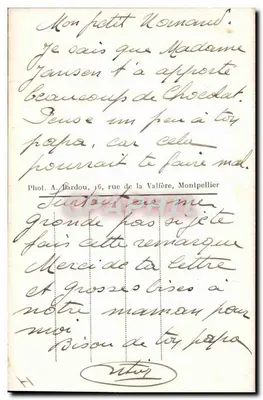 Mon petit Normand.
Je sais que Madame
Janson t'a apporté
beaucoup de Chocolat.
Pense un peu à ton
papa, car cela
pourrait te faire mal.
Phot. A. Bardou, 16, rue de la Valfère, Montpellier
Surtout ne me
gronde pas si je te
fais cette remarque
Merci de ta lettre
et grosses bises à
notre maman pour
moi
Bison de ton papa